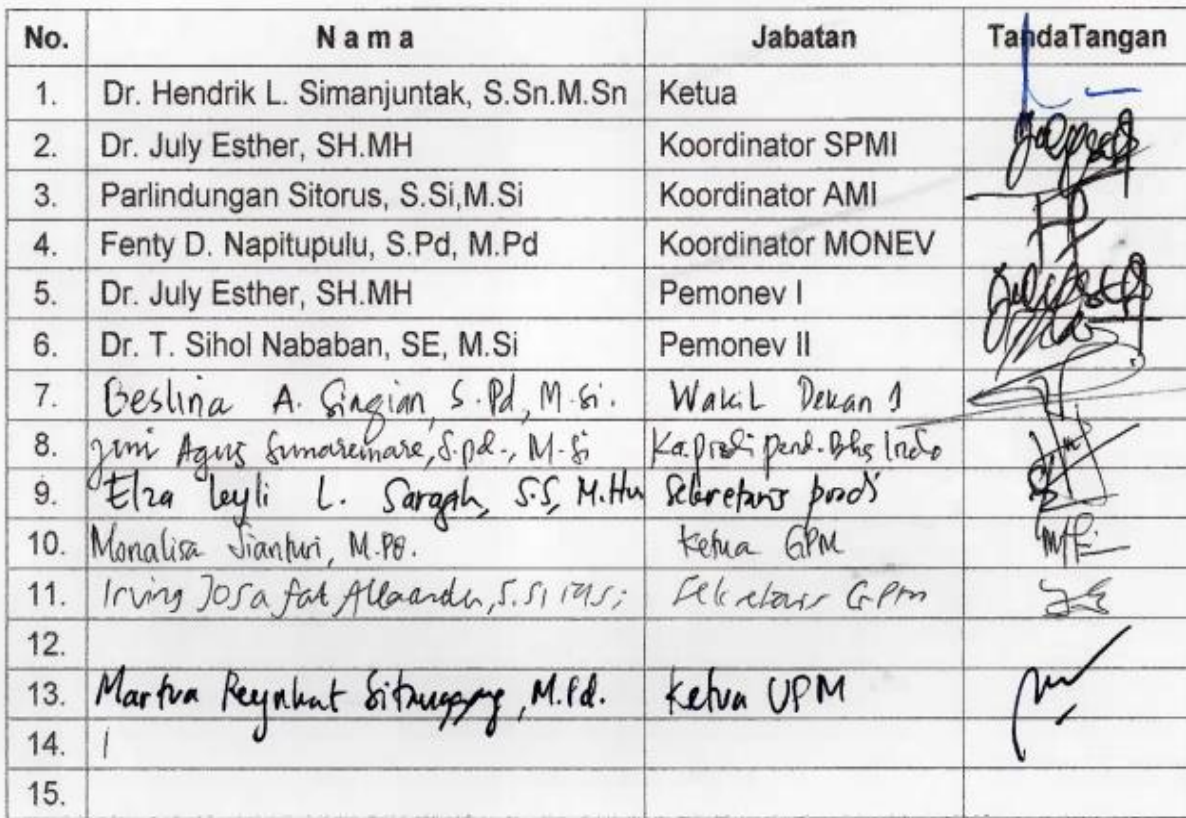 No. Nama Jabatan TandaTangan
1. Dr. Hendrik L. Simanjuntak, S.Sn.M.Sn Ketua
2. Dr. July Esther, SH.MH Koordinator SPMI
3. Parlindungan Sitorus, S.Si,M.Si Koordinator AMI
4. Fenty D. Napitupulu, S.Pd, M.Pd Koordinator MONEV
5. Dr. July Esther, SH.MH Pemonev I
6. Dr. T. Sihol Nababan, SE, M.Si Pemonev II
7. Beslina A. S.Pd, M.Si. Wakil Dekan 1
8. Agus S.Pd., M.Si Ka.prodi pend. Bhs Indo
9. Elza L. S.S, M.Hum Sekretaris prodi
10. Monalisa Sianturi, M.Pd. Ketua GPM
11. Irving Josafat S.Si Sekretaris GPM
12.
13. M.Pd. Ketua UPM
14.
15.